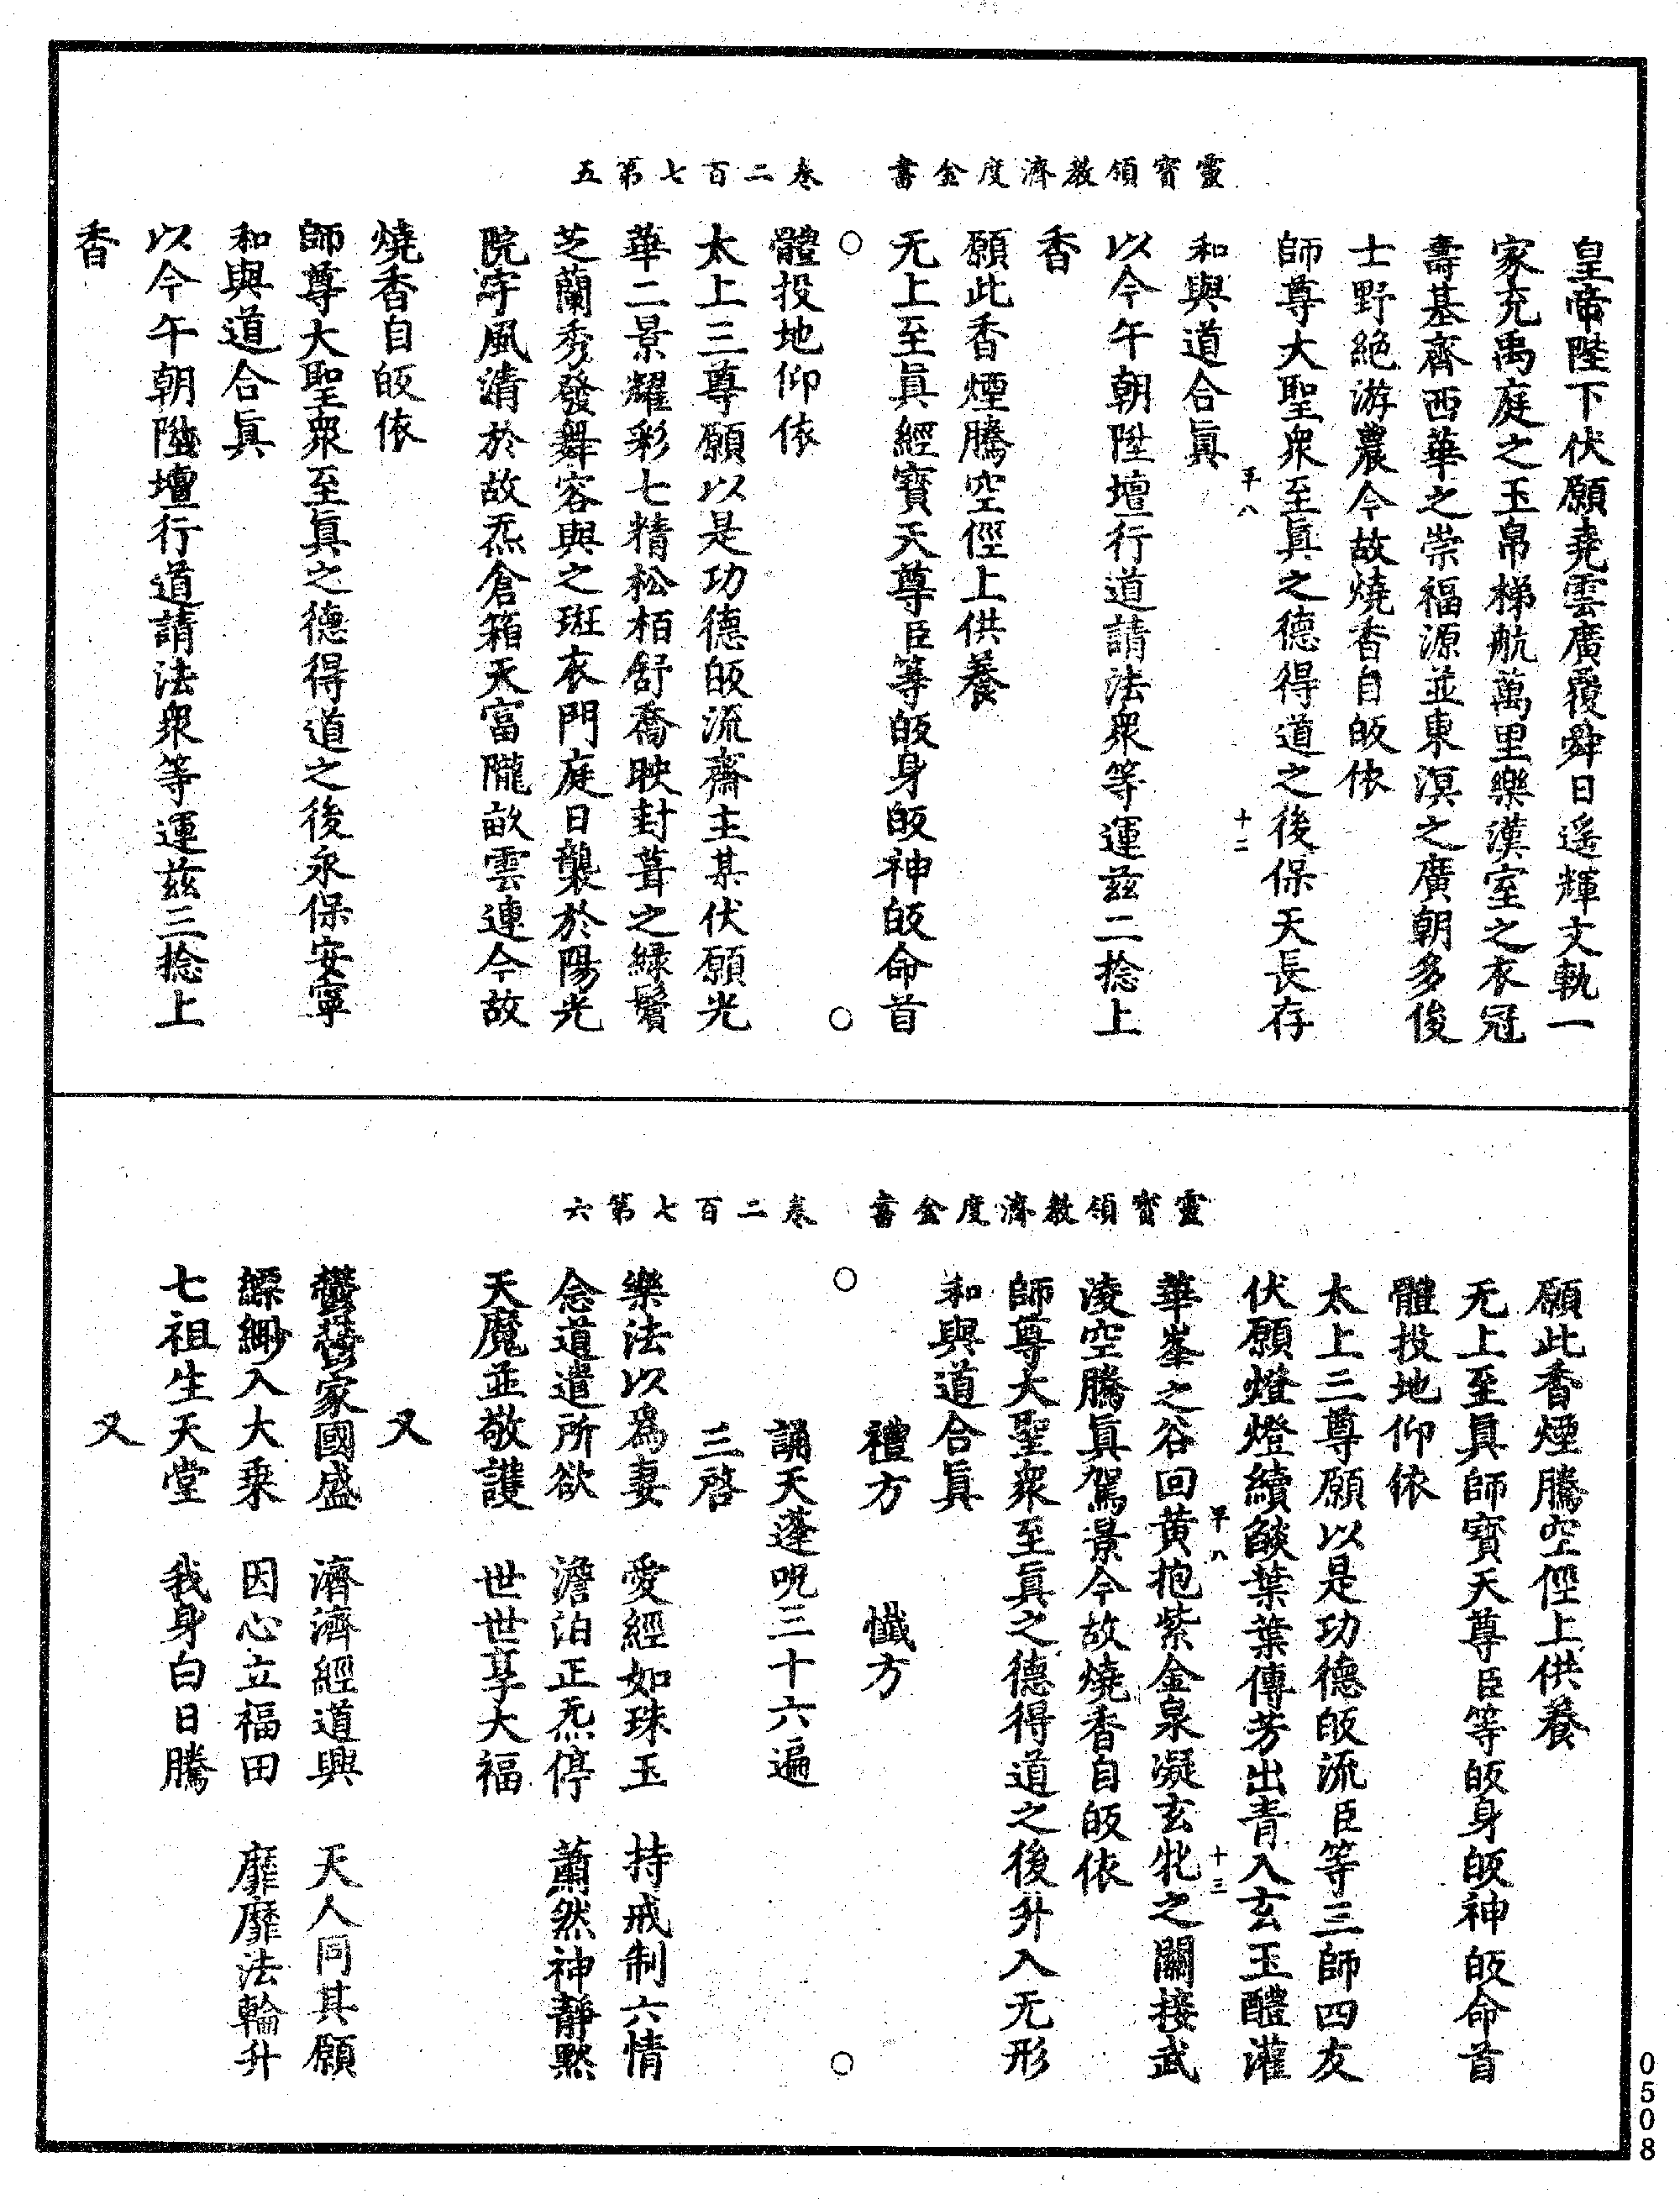 靈寶領教濟度金書　卷二百七第五
皇帝陛下伏願堯雲廣覆舜日遙輝文軌一
家充禹庭之玉帛梯航萬里樂漢室之衣冠
壽基齊西華之崇福源並東溟之廣朝多俊
士野絕游農今故燒香自皈依
師尊大聖衆至眞之德得道之後保天長存
平八　十二
和與道合眞
以今午朝陞壇行道請法衆等運茲二捻上
香
願此香煙騰空徑上供養
无上至眞經寶天尊臣等皈身皈神皈命首
○　○
體投地仰依
太上三尊願以是功德皈流齋主某伏願光
華二景耀彩七精松栢舒喬映封葺之綠鬢
芝蘭秀發舞容與之斑衣門庭日襲於陽光
院宇風清於故炁倉箱天富隴畝雲連今故
燒香自皈依
師尊大聖衆至眞之德得道之後永保安寧
和與道合眞
以今午朝陞壇行道請法衆等運茲三捻上
香
靈寶領教濟度金書　卷二百七第六
願此香煙騰空徑上供養
无上至眞師寶天尊臣等皈身皈神皈命首
體投地仰依
太上三尊願以是功德皈流臣等三師四友
伏願燈燈續燄葉葉傳芳出青入玄玉醴灌
平八　十三
華峯之谷回黃抱紫金泉凝玄牝之關接武
淩空騰眞駕景今故燒香自皈依
師尊大聖衆至眞之德得道之後升入无形
和與道合眞
禮方　懺方
○　○
誦天蓬呪三十六遍
三啓
樂法以爲妻　愛經如珠玉　持戒制六情
念道遣所欲　澹泊正炁停　蕭然神靜默
天魔並敬護　世世享大福
又
鬱鬱家國盛　濟濟經道興　天人同其願
縹緲入大乘　因心立福田　靡靡法輪升
七祖生天堂　我身白日騰
又
0508